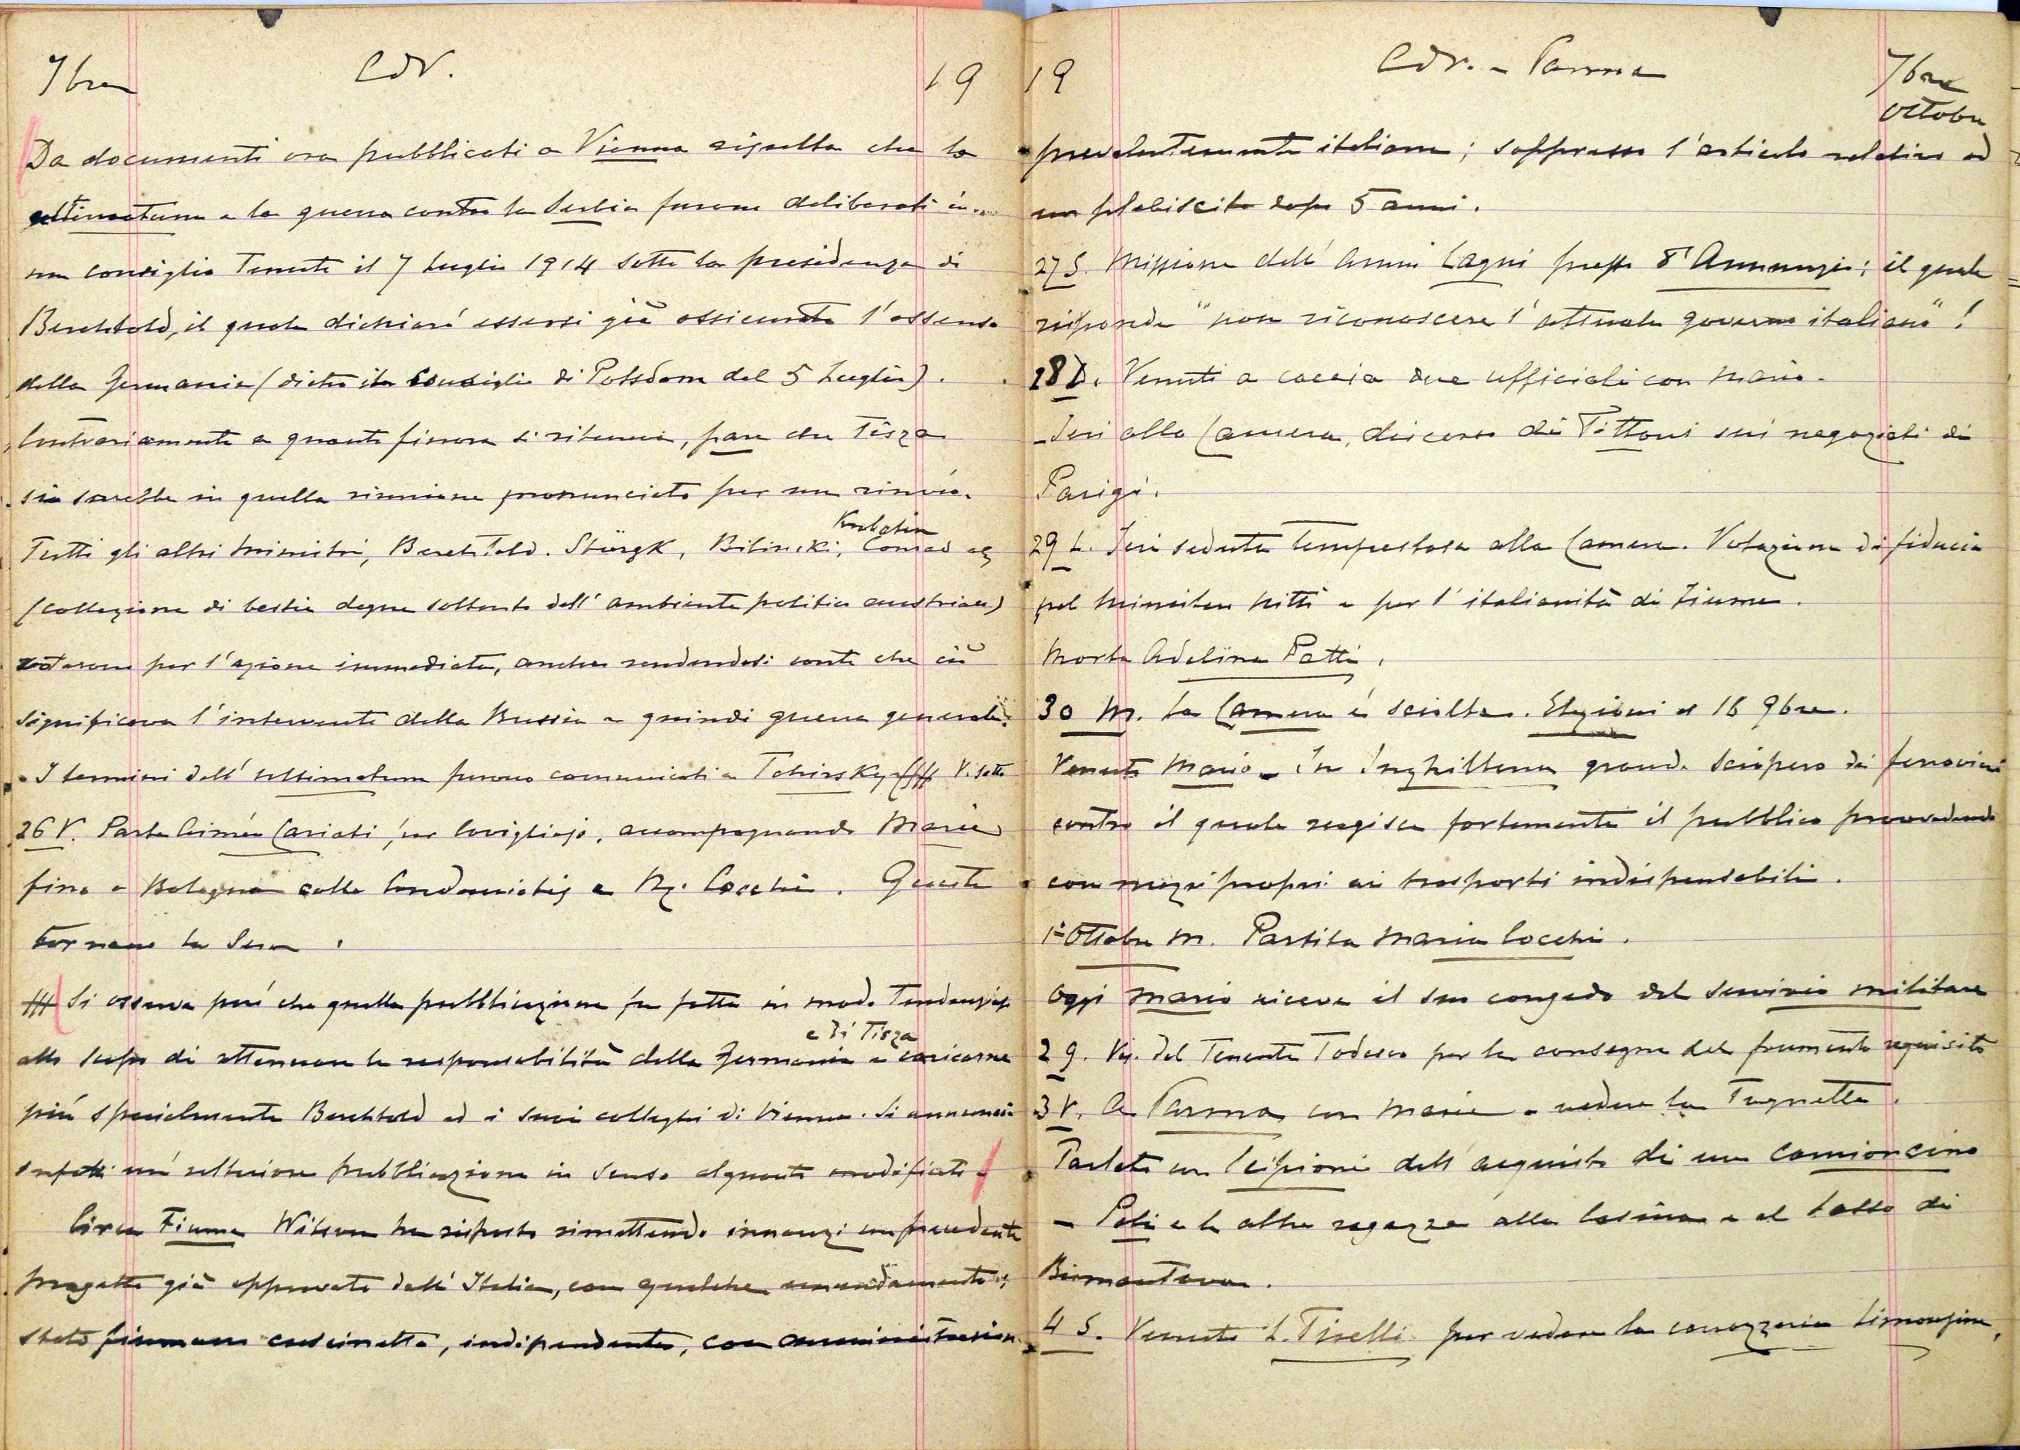 7bre CdV. 19
Da documenti ora pubblicati a Vienna risulta che lo
ultimatum e la guerra contro la Serbia furono deliberati in
un consiglio tenuto il 7 Luglio 1914 sotto la presidenza di
Berchtold, il quale dichiarò essersi già assicurato l'assenso
della Germania (dietro il consiglio di Potsdam del 5 Luglio).
Contrariamente a quanto finora si riteneva, pare che Tisza
si sarebbe in quella riunione pronunciato per un rinvio.
Krobatin
Tutti gli altri ministri, Berchtold. Stürgk, Bilinski, Conrad
(collezione di bestie degne soltanto dell'ambiente politico austriaco)
votarono per l'azione immediata, anche rendendosi conto che ciò
significava l'intervento della Russia e quindi guerra generale.
I termini dell'ultimatum furono comunicati a Tchirsky. V. sotto
26 V. Parte Cariati per Covigliajo, accompagnando Maria
fino a Bologna colla e Cocchi. Queste
tornano la sera.
Si osserva però che quella pubblicazione fu fatta in modo tendenzioso
e di Tisza
allo scopo di attenuare la responsabilità della Germania e caricarne
più specialmente Berchtold ed i suoi colleghi di Vienna. Si annuncia
infatti un'ulteriore pubblicazione in senso alquanto modificato.
Circa Fiume Wilson ha risposto rimettendo innanzi un precedente
progetto già approvato dall'Italia, con qualche emendamento;
Stato fiumano cuscinetto, indipendente, con amministrazione
19 CdV. - Parma 7bre
Ottobre
prevalentemente italiana; soppresso l'articolo relativo ad
un plebiscito dopo 5 anni.
27 S. Missione dell'Amm. Cagni presso d'Annunzio; il quale
risponde "non riconoscere l'attuale governo italiano"!
28 D. Venuti a caccia due ufficiali con Mario.
- Ieri alla Camera, discorso di Tittoni sui negoziati di
Parigi.
29 L. Ieri seduta tempestosa alla Camera. Votazione di fiducia
pel ministero Nitti e per l'italianità di Fiume.
Morta Adelina Patti.
30 M. La Camera è sciolta. Elezioni al 16 9bre.
Venuto Mario - In Inghilterra grande sciopero dei ferrovieri
contro il quale reagisce fortemente il pubblico provvedendo
con mezzi propri ai trasporti indispensabili.
1° Ottobre M. Partita Maria Cocchi.
Oggi Mario riceve il suo congedo dal servizio militare
2 G. del Tenente Todesco per la consegna del frumento requisito
3 V. A Parma con Maria a vedere la Tugnetta.
Parlato con Scipioni dell'acquisto di un camioncino
- Poli e le altre ragazze alla Casina e al Sasso di
Bismantova.
4 S. Venuto L. Tirelli per vedere la carrozzeria Limousine,